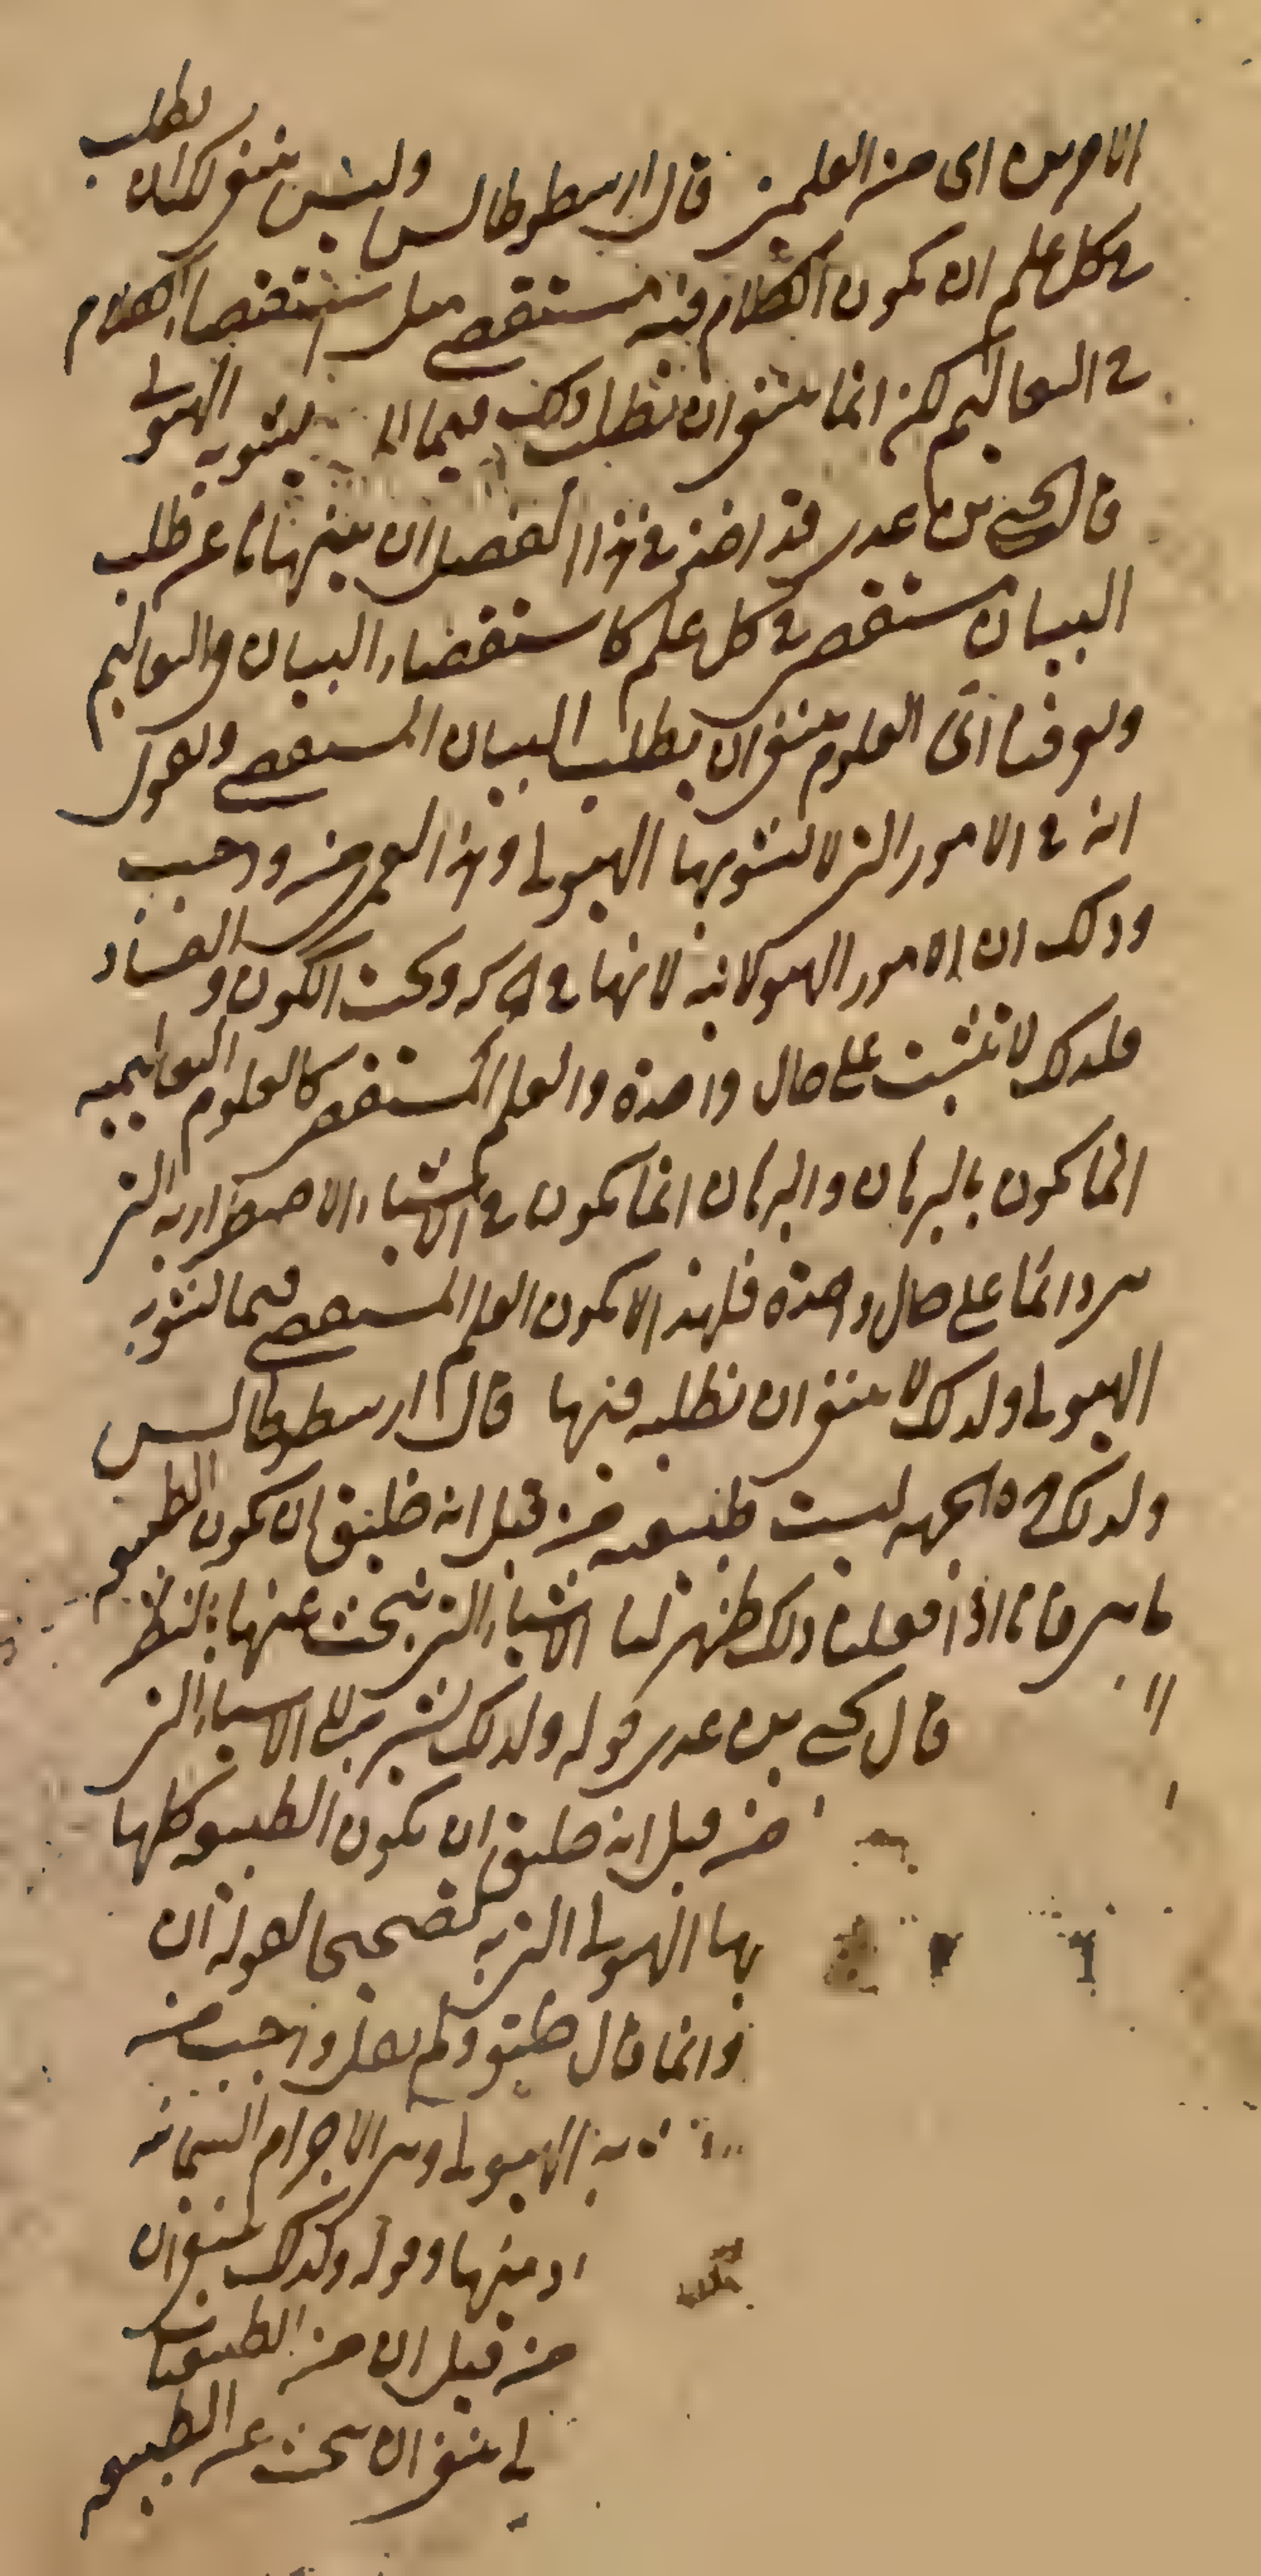 الامرين اى من العلمين قال ارسطوطالس وليس ينبغي لنا ان نطلب
في كل علم ان يكون الكلام فيه مستقصى مثل استقصاء الكلام
في التعاليم لكن انما ينبغي ان نطلب ذلك فيما لا يشوبه الهيولى
قال يحيى بن عدى قد اخذ في هذا الفصل ان ينهانا عن طلب
البيان مستقصى في كل علم كاستقصاء البيان في التعاليم
ويعرفنا اى العلوم ينبغي ان يطلب البيان المستقصى ويقول
انه في الامور التي لا تشوبها الهيولى وهذا العمرى من وجب
وذلك ان الامور الهيولانيه لانها في الحركه وتحت الكون والفساد
فلذلك لا تثبت على حال واحدة والعلم المستقصى كالعلوم التعاليميه
انما يكون بالبرهان والبرهان انما يكون في الاشياء الاضطراريه التي
هى دائما على حال واحدة فلهذا لا يكون العلم المستقصى فيما تشوبه
الهيولى ولذلك لا ينبغي ان نطلبه فيها قال ارسطوطالس
ولذلك هذه الجهه ليست طبيعيه من قبل انه خليق ان يكون الطبيعه
ما هى فانا اذا فعلنا ذلك ظهر لنا الاشياء التي نبحث عنها بالنظر
قال يحيى بن عدى قوله ولذلك يشير الى الاشياء التي
من قبل انه خليق ان يكون الطبيعه كلها
بها الهيولى التي به تصحيحا لقوله ان
وانما قال خليق ولم يقل واجب من
به الهيولى وهى الاجرام السمائيه
منها وقوله ولذلك ينبغي ان
من قبل ان من الطبيعيات
ينبغي ان نبحث عن الطبيعه